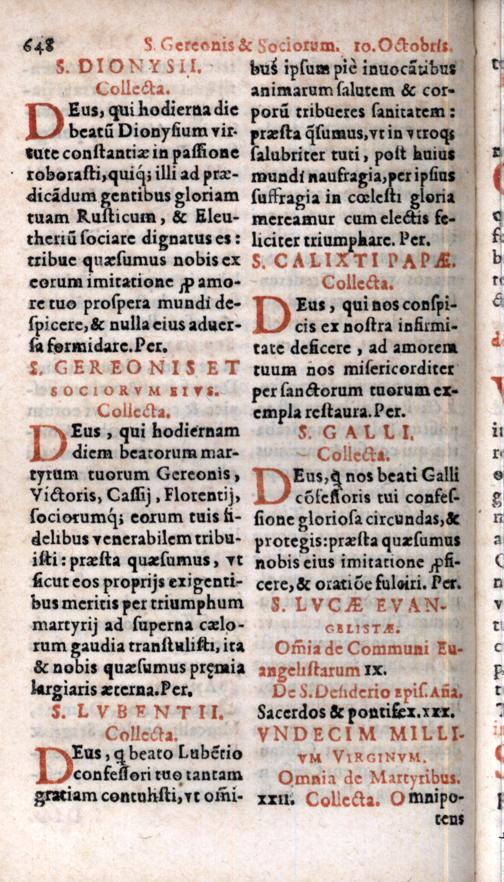 648 S. Gereonis & Sociorum. 10. Octobris.
S. DIONYSII.
Collecta.
DEus, qui hodierna die
beatū Dionysium vir-
tute constantiæ in passione
roborasti, quiq; illi ad præ-
dicādum gentibus gloriam
tuam Rusticum, & Eleu-
theriū sociare dignatus es:
tribue quæsumus nobis ex
eorum imitatione ꝓ amo-
re tuo prospera mundi de-
spicere, & nulla eius aduer-
sa formidare. Per.
S. GEREONIS ET
SOCIORVM EIVS.
Collecta.
DEus, qui hodiernam
diem beatorum mar-
tyrum tuorum Gereonis,
Victoris, Cassij, Florentij,
sociorumq; eorum tuis fi-
delibus venerabilem tribu-
isti: præsta quæsumus, vt
sicut eos proprijs exigenti-
bus meritis per triumphum
martyrij ad superna cælo-
rum gaudia transtulisti, ita
& nobis quæsumus pręmia
largiaris æterna. Per.
S. LVBENTII.
Collecta.
DEus, q̨ beato Lubētio
confessori tuo tantam
gratiam contulisti, vt om̄i-
bus ipsum piè inuocātibus
animarum salutem & cor-
porū tribueres sanitatem:
præsta q̄sumus, vt in vtroq;
salubriter tuti, post huius
mundi naufragia, per ipsius
suffragia in cœlesti gloria
mereamur cum electis fe-
liciter triumphare. Per.
S. CALIXTI PAPÆ.
Collecta.
DEus, qui nos conspi-
cis ex nostra infirmi-
tate deficere, ad amorem
tuum nos misericorditer
per sanctorum tuorum ex-
empla restaura. Per.
S. GALLI.
Collecta.
DEus, q̨ nos beati Galli
cōfessoris tui confes-
sione gloriosa circundas, &
protegis: præsta quæsumus
nobis eius imitatione ꝓfi-
cere, & oratiōe fulciri. Per.
S. LVCÆ EVAN-
GELISTÆ.
Om̄ia de Communi Eu-
angelistarum IX.
De S. Desiderio Epis. Añа.
Sacerdos & pontifex. xxx.
VNDECIM MILLI-
VM VIRGINVM.
Omnia de Martyribus.
xxii. Collecta. Omnipo-
tens